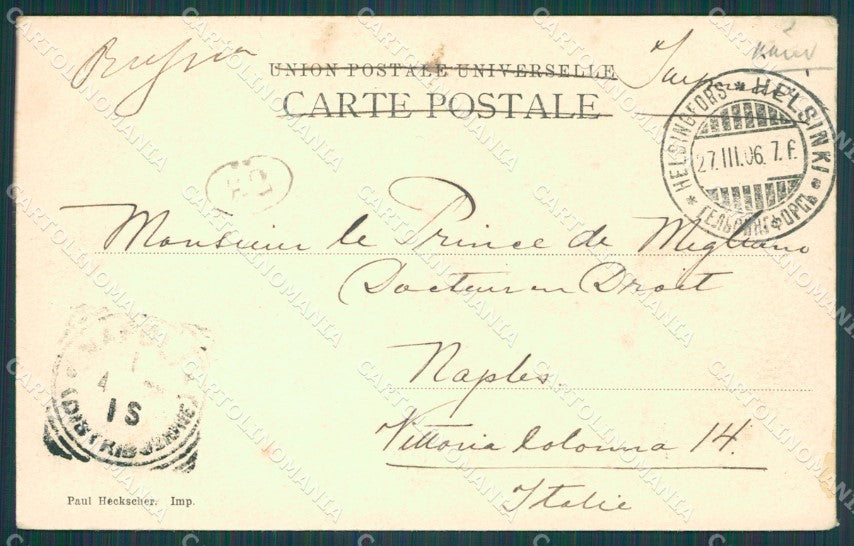 UNION POSTALE UNIVERSELLE
CARTE POSTALE
HELSINGFORS * HELSINKI
27.III.06. 7. f.
ГЕЛЬСИНГФОРСЪ
Monsieur le Prince de Migliano
Docteur en Droit
Naples
Vittoria Colonna 14.
Italie
1S
(DISTRIBUZIONE)
Paul Heckscher. Imp.
CARTOLINOMANIA